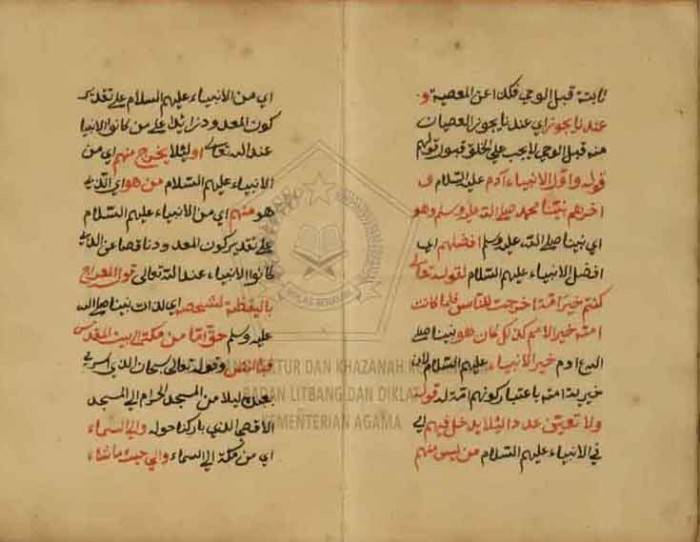 ثابتة قبل الوحي فكذا عن المعصية و
عندنا يجوز اي عندنا يجوز العصيان
منه قبل الوحي لا يجب على الخلق قبول قولهم
قوله واول الانبياء آدم عليه السلام و
اخرهم نبينا محمد صلى الله عليه وسلم وهو
اي نبينا صلى الله عليه وسلم افضلهم اي
افضل الانبياء عليهم السلام لقوله تعالى
كنتم خير امة اخرجت للناس فلما كانت
امته خير الامم كذلك كان هو نبينا صلى
خير الانبياء عليهم السلام لان
خيرية امته باعتبار كونهم امة له قوله
ولا تعين عددا لئلا يدخل فيهم اي
في الانبياء عليهم السلام من ليس منهم
اي من الانبياء عليهم السلام على تقدير
كون المعدود زايدا على من كانوا الانبيا
عند الله تعالى او لئلا يخرج منهم اي من
الانبياء عليهم السلام من هو اي الذي
هو منهم اي من الانبياء عليهم السلام
على تقدير كون المعدود ناقصا عن الذي
كانوا الانبياء عند الله تعالى قوله المعراج
باليقظة لشخصه اي لذات نبينا صلى الله
عليه وسلم حق اما من مكة الى بيت المقدس
فبالنص وقوله تعالى سبحان الذي اسرى
بعبده ليلا من المسجد الحرام الى المسجد
الاقصى الذي باركنا حوله والى السماء
اي من مكة الى السماء والى حيث ما شاء
IKHLAS BERAMAL
LEKTUR DAN KHAZANAH
BADAN LITBANG DAN DIKLAT
KEMENTERIAN AGAMA